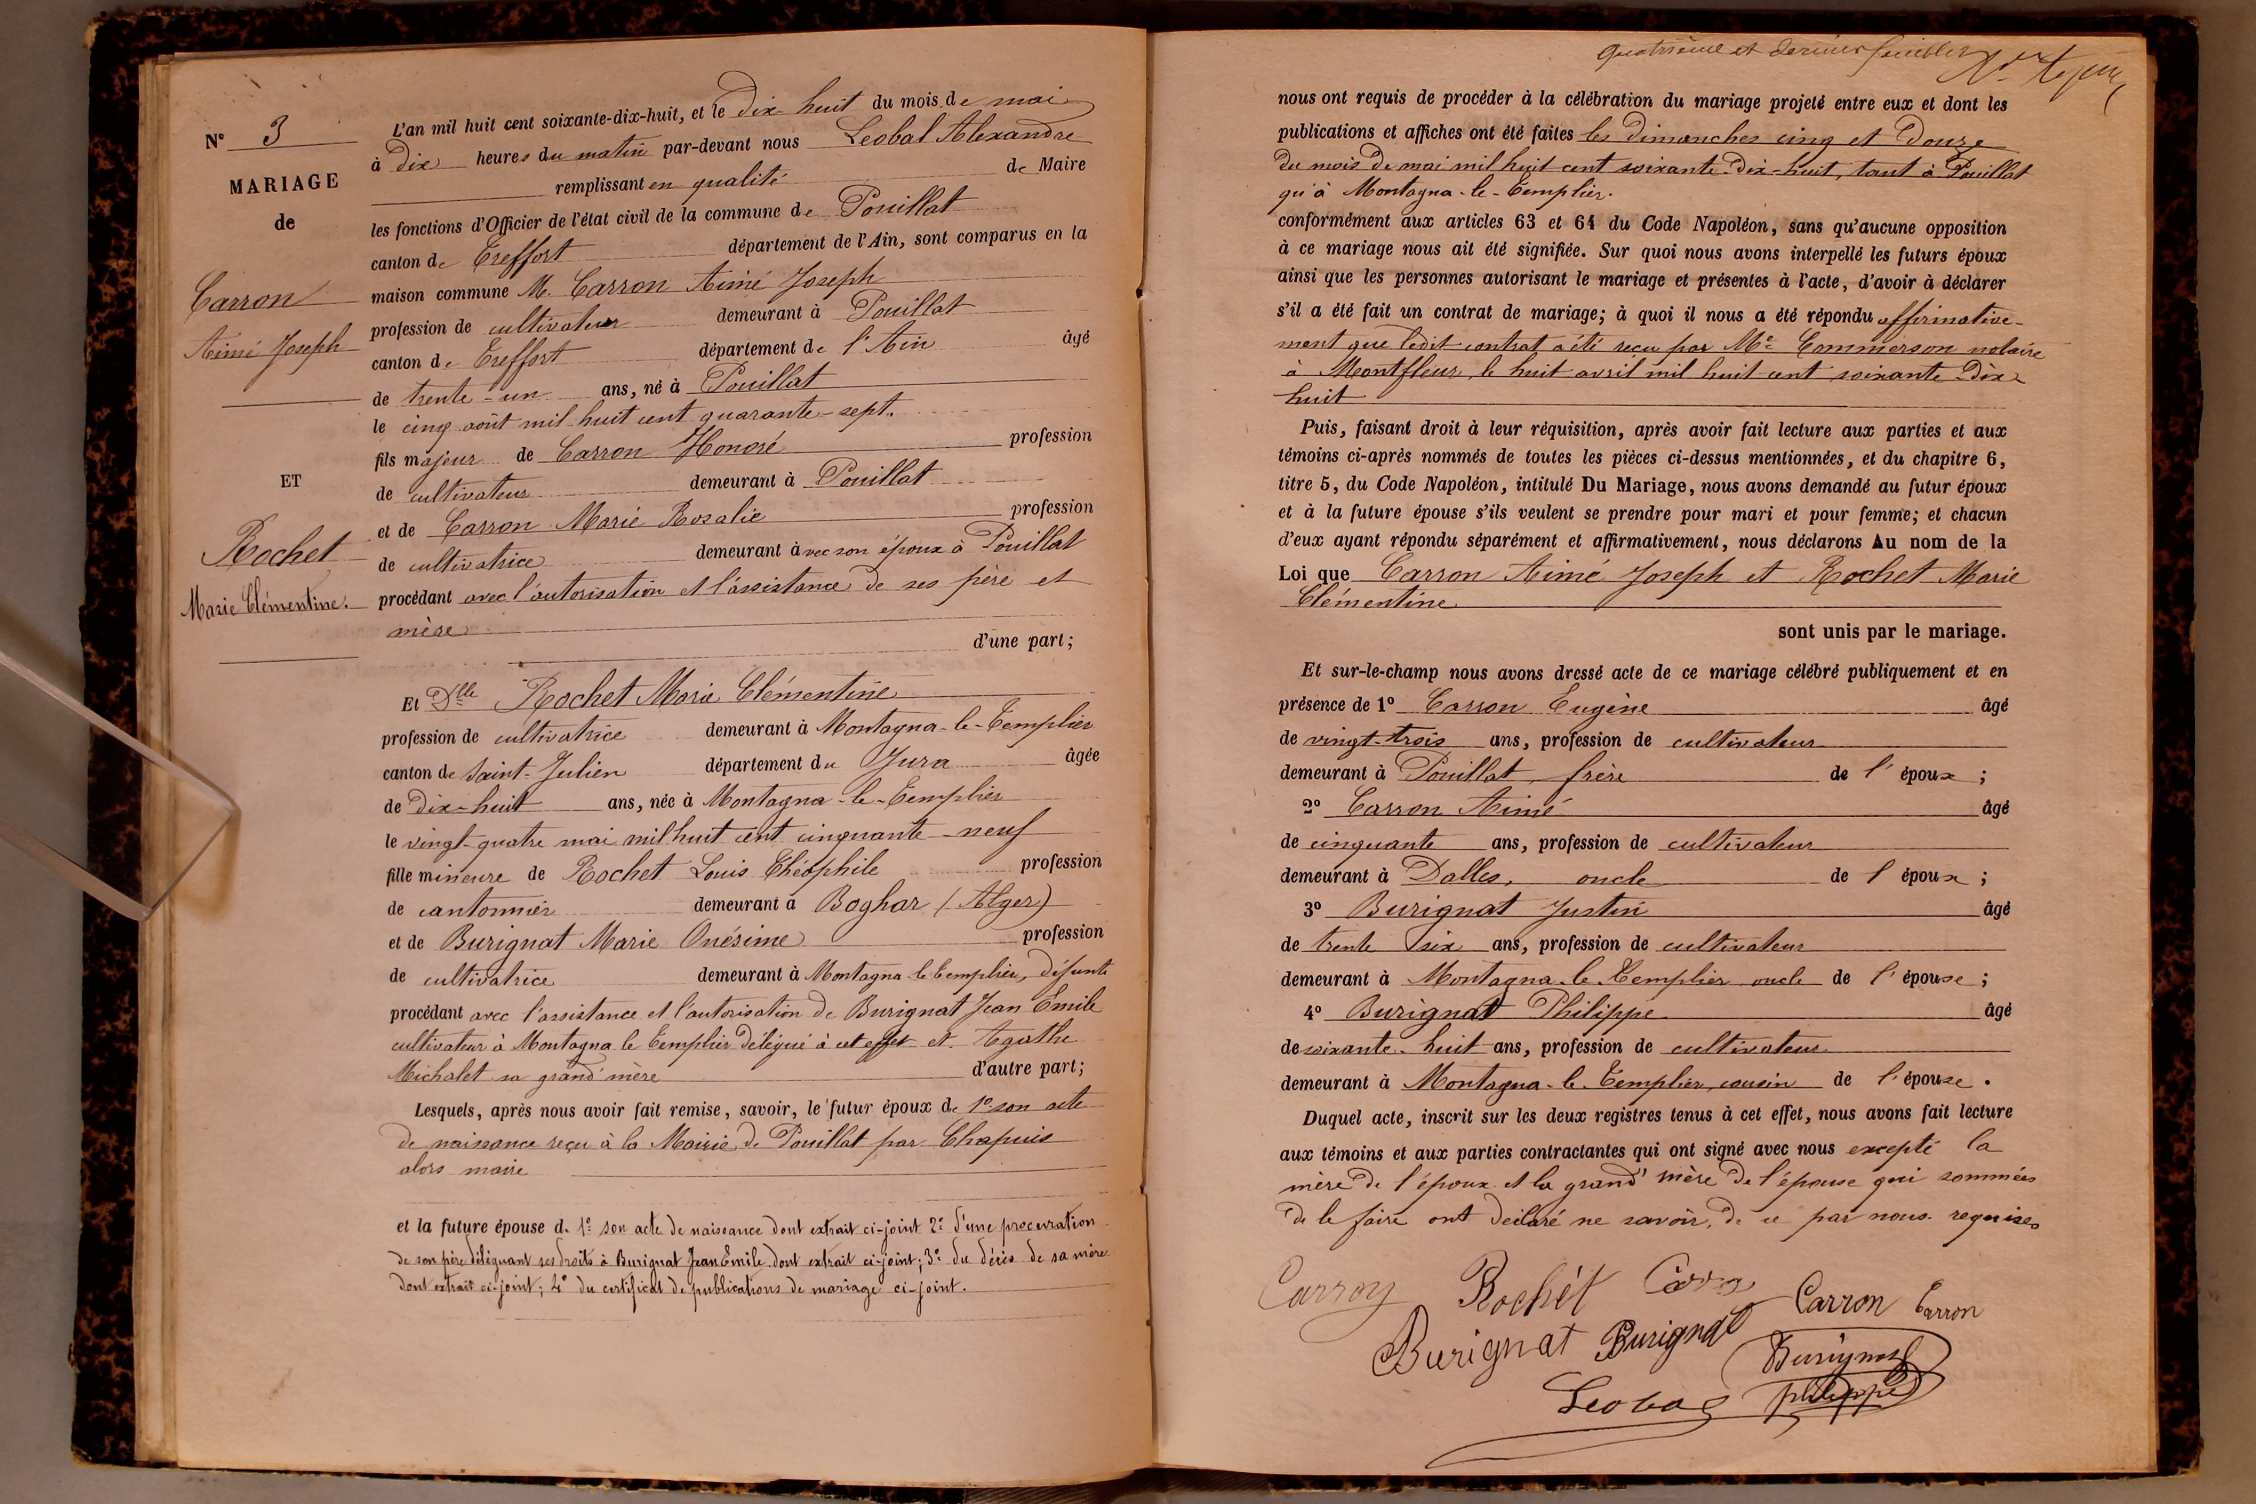 N° 3
MARIAGE
de
Carron
Aimé Joseph
ET
Rochet
Marie Clémentine.
L'an mil huit cent soixante-dix-huit, et le dix huit du mois de mai
à dix heures du matin par-devant nous Leobal Alexandre
remplissant en qualité de Maire
les fonctions d'Officier de l'état civil de la commune de Pouillat
canton de Treffort département de l'Ain, sont comparus en la
maison commune M. Carron Aimé Joseph
profession de cultivateur demeurant à Pouillat
canton de Treffort département de l'Ain âgé
de trente-un ans, né à Pouillat
le cinq août mil huit cent quarante-sept.
fils majeur de Carron Honoré profession
de cultivateur demeurant à Pouillat
et de Carron Marie Rosalie profession
de cultivatrice demeurant avec son époux à Pouillat
procédant avec l'autorisation et l'assistance de ses père et
mère
d'une part;
Et Dlle Rochet Marie Clémentine
profession de cultivatrice demeurant à Montagna-le-Templier
canton de Saint-Julien département du Jura âgée
de dix-huit ans, née à Montagna-le-Templier
le vingt-quatre mai mil huit cent cinquante-neuf
fille mineure de Rochet Louis Théophile profession
de cantonnier demeurant à Boghar (Alger)
et de Burignat Marie Onésime profession
de cultivatrice demeurant à Montagna le Templier, défunte
procédant avec l'assistance et l'autorisation de Burignat Jean Emile
cultivateur à Montagna le Templier délégué à cet effet et Agathe
Michalet sa grand'mère d'autre part;
Lesquels, après nous avoir fait remise, savoir, le futur époux de 1° son acte
de naissance reçu à la Mairie de Pouillat par Chapuis
alors maire
et la future épouse de 1° son acte de naissance dont extrait ci-joint 2° d'une procuration
de son père déléguant ses droits à Burignat Jean Emile dont extrait ci-joint; 3° du décès de sa mère
dont extrait ci-joint; 4° du certificat de publications de mariage ci-joint.
quatrième et dernier feuillet
nous ont requis de procéder à la célébration du mariage projeté entre eux et dont les
publications et affiches ont été faites les dimanches cinq et douze
du mois de mai mil huit cent soixante-dix-huit, tant à Pouillat
qu'à Montagna-le-Templier.
conformément aux articles 63 et 64 du Code Napoléon, sans qu'aucune opposition
à ce mariage nous ait été signifiée. Sur quoi nous avons interpellé les futurs époux
ainsi que les personnes autorisant le mariage et présentes à l'acte, d'avoir à déclarer
s'il a été fait un contrat de mariage; à quoi il nous a été répondu affirmative-
ment que ledit contrat a été reçu par Me Commerson notaire
à Montfleur, le huit avril mil huit cent soixante dix
huit
Puis, faisant droit à leur réquisition, après avoir fait lecture aux parties et aux
témoins ci-après nommés de toutes les pièces ci-dessus mentionnées, et du chapitre 6,
titre 5, du Code Napoléon, intitulé Du Mariage, nous avons demandé au futur époux
et à la future épouse s'ils veulent se prendre pour mari et pour femme; et chacun
d'eux ayant répondu séparément et affirmativement, nous déclarons Au nom de la
Loi que Carron Aimé Joseph et Rochet Marie
Clémentine
sont unis par le mariage.
Et sur-le-champ nous avons dressé acte de ce mariage célébré publiquement et en
présence de 1° Carron Eugène âgé
de vingt-trois ans, profession de cultivateur
demeurant à Pouillat, frère de l'époux;
2° Carron Aimé âgé
de cinquante ans, profession de cultivateur
demeurant à Dalles, oncle de l'époux;
3° Burignat Justin âgé
de trente six ans, profession de cultivateur
demeurant à Montagna-le-Templier oncle de l'épouse;
4° Burignat Philippe âgé
de soixante-huit ans, profession de cultivateur
demeurant à Montagna-le-Templier, cousin de l'épouse.
Duquel acte, inscrit sur les deux registres tenus à cet effet, nous avons fait lecture
aux témoins et aux parties contractantes qui ont signé avec nous excepté la
mère de l'époux et la grand'mère de l'épouse qui sommées
de le faire ont déclaré ne savoir, de ce par nous requises
Carron Rochet Carron Carron Carron
Burignat Burignat Burignat
Leobal philippe